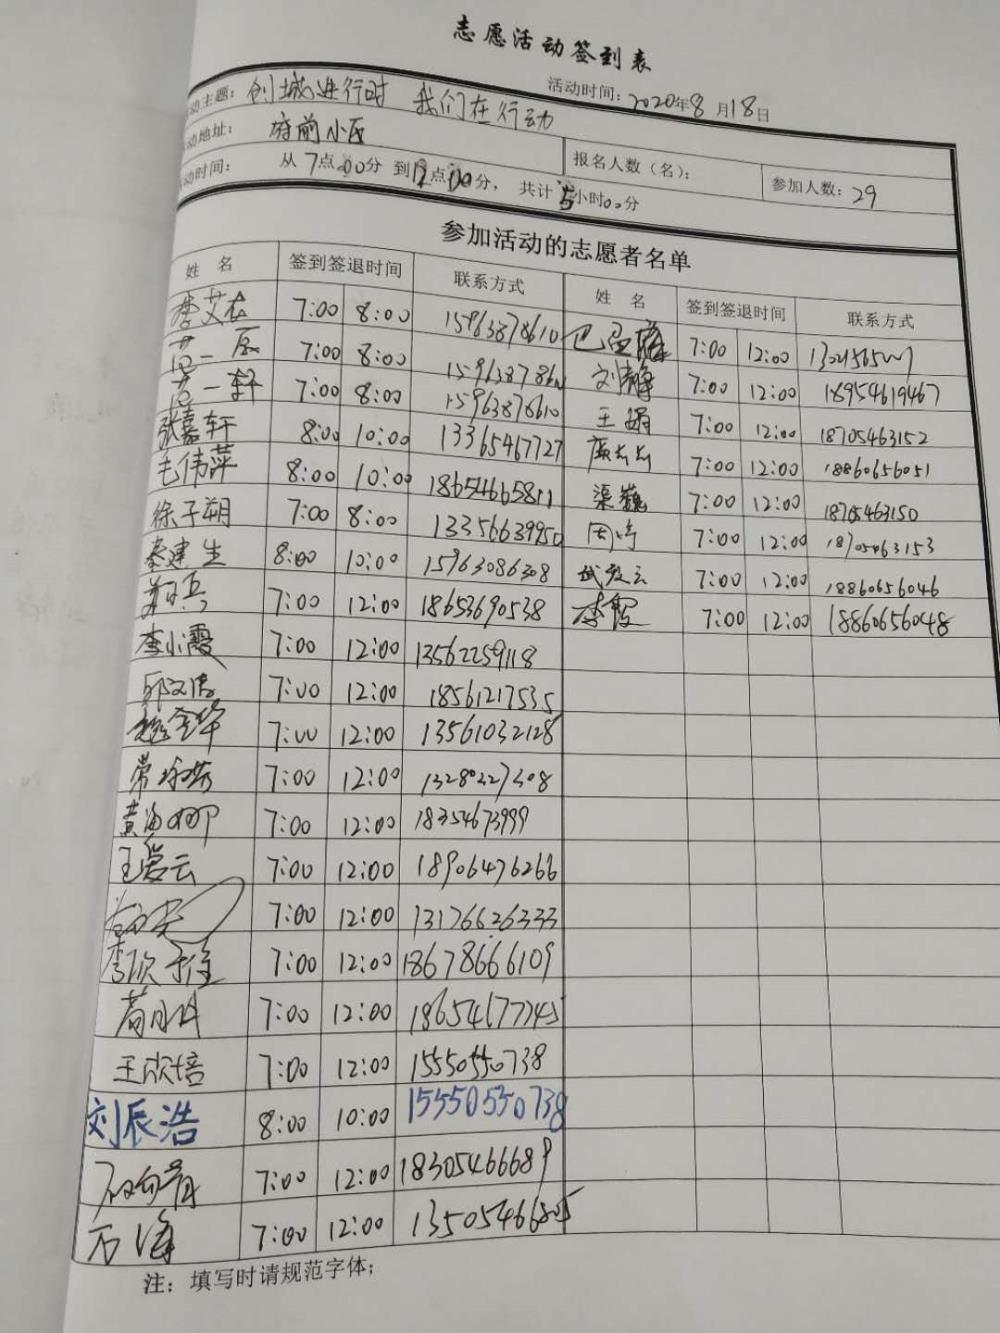 志愿活动签到表
活动时间：2020年8月18日
动主题：创城进行时 我们在行动
动地址：府前小区
报名人数（名）：
参加人数：29
动时间：从7点00分到12点00分，共计5小时00分
参加活动的志愿者名单
姓 名 签到签退时间 联系方式 姓 名 签到签退时间 联系方式
7:00 8:00 15963878610 7:00 12:00
7:00 8:00 刘静 7:00 12:00 18954619467
一轩 7:00 8:00 15963878610 王娟 7:00 12:00 18705463152
张嘉轩 8:00 10:00 13365467727 7:00 12:00 18860656051
毛伟萍 8:00 10:00 18654665811 渠巍 7:00 12:00 18705463150
徐子朔 7:00 8:00 13356639950 周 7:00 12:00 18705463153
秦建生 8:00 10:00 15963086308 武 云 7:00 12:00 18860656046
7:00 12:00 18653690538 李霞 7:00 12:00 18860656048
李小霞 7:00 12:00 13562259118
7:00 12:00 18561217535
7:00 12:00 13561032128
常 7:00 12:00
黄海 7:00 12:00 18354673999
王爱云 7:00 12:00 18906476266
7:00 12:00 13176626333
李欣 7:00 12:00 18678666109
7:00 12:00
王欣培 7:00 12:00 15550550738
刘辰浩 8:00 10:00 15550550738
7:00 12:00 18305466689
石峰 7:00 12:00
注：填写时请规范字体；